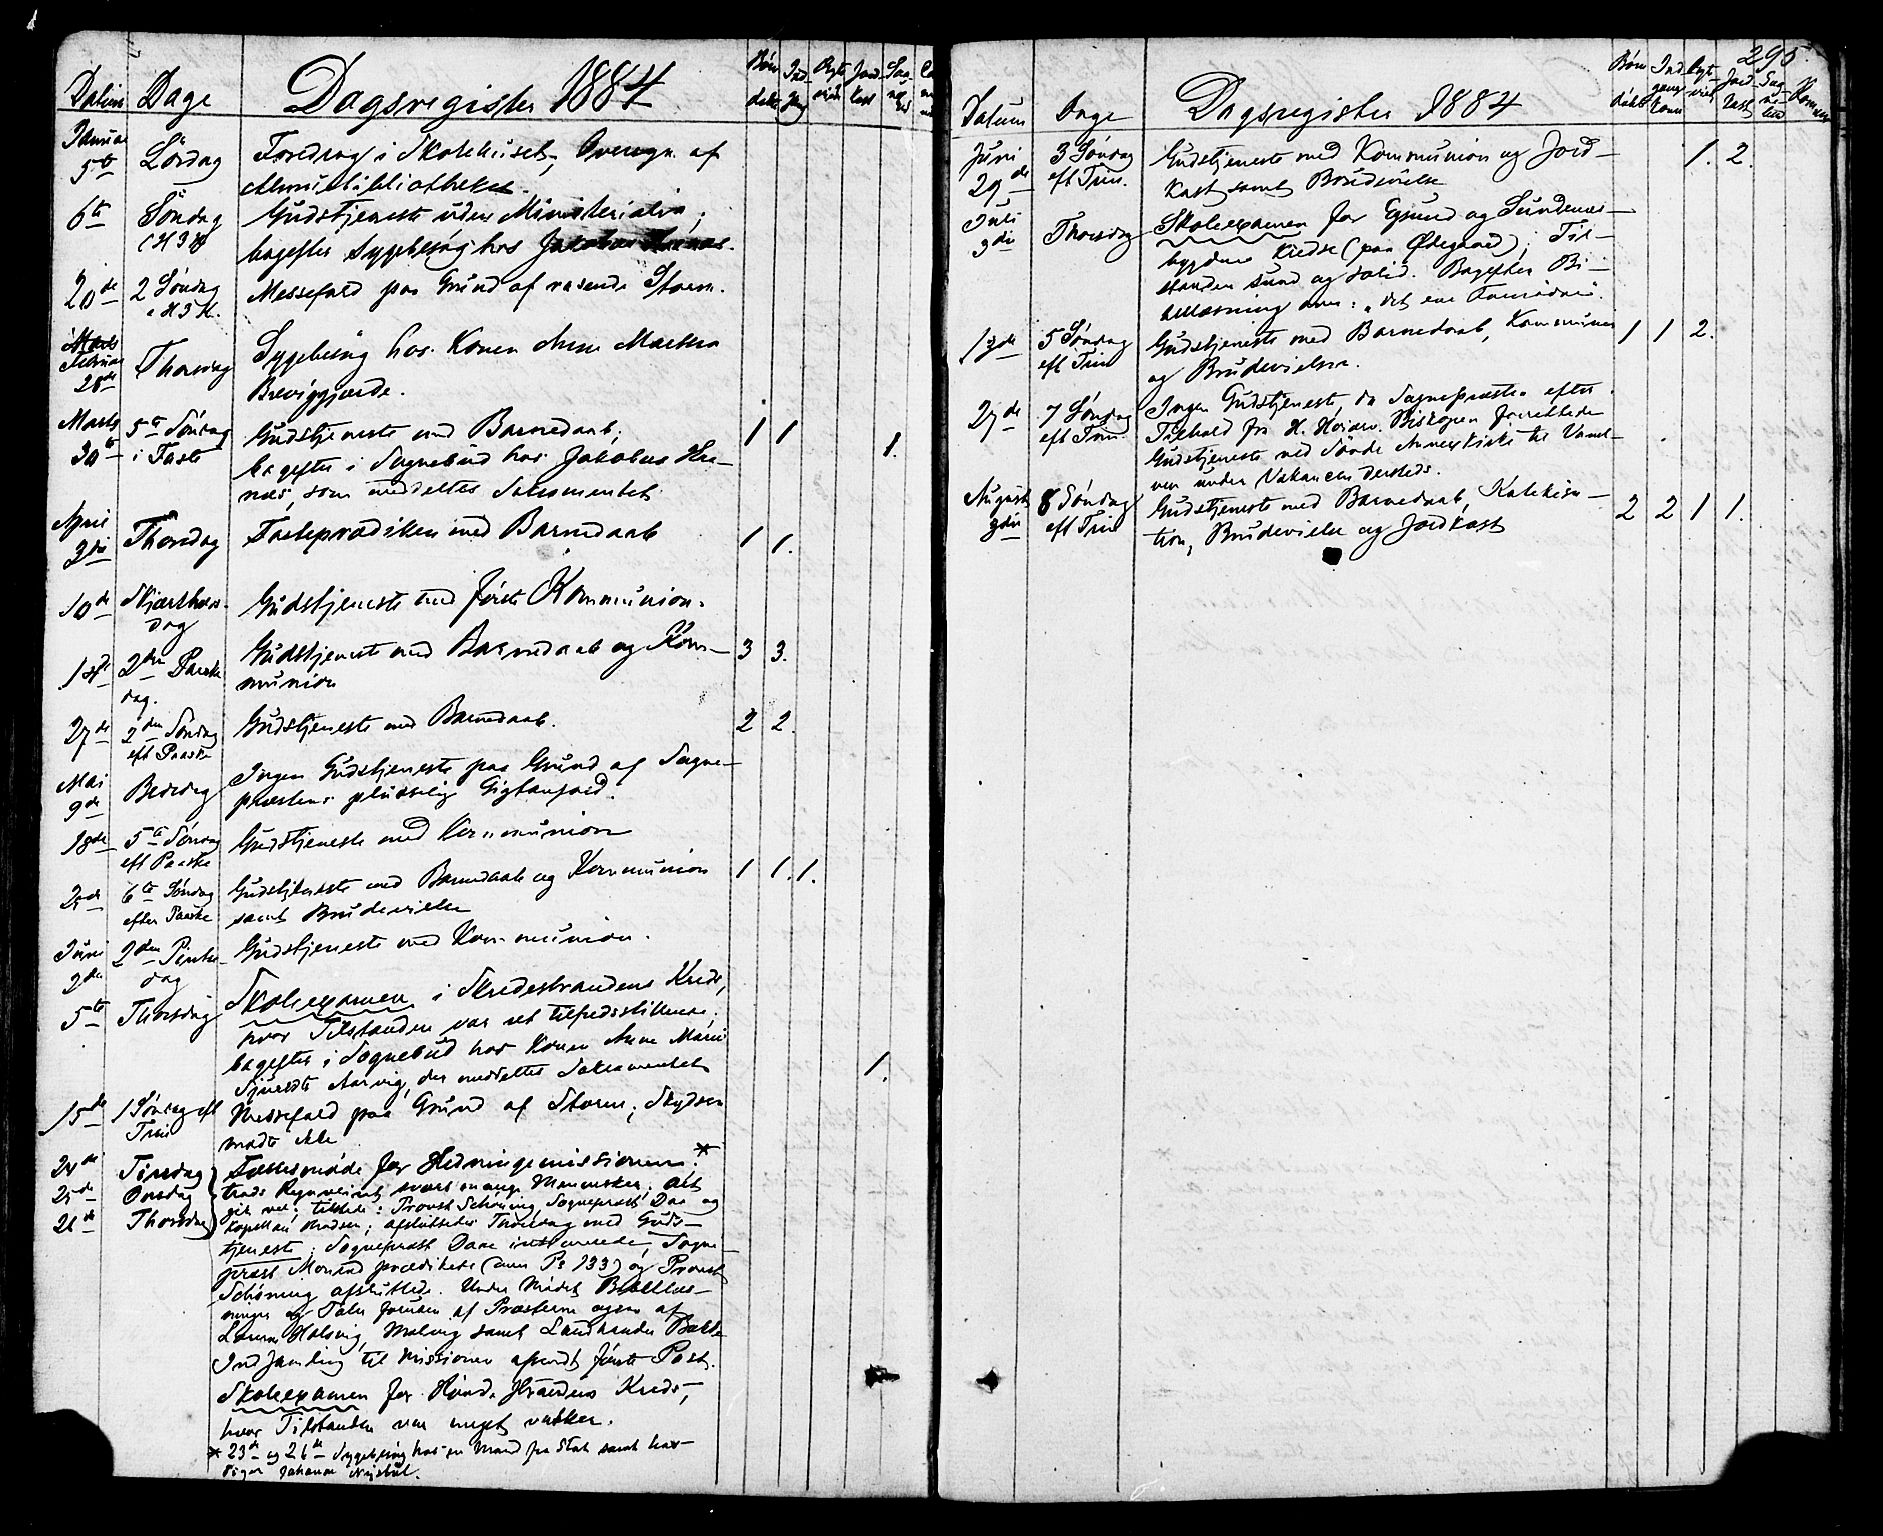 Datum Dage Dagsregister 1884
Januar
5te Lördag Foredrag i Skolehuset, Overgn. af
Almuebibliotheket.
6te Söndag Gudstjeneste uden Ministerialia;
(H3K) bagefter Sygebesög hos Jakobus
20de 2 Söndag Messefald paa Grund af rasende Storm.
e H3K.
Marts
Februar
28de Thorsdag Sygebesög hos Konen Anne Martha
Breviggjærde.
Marts
30te 5te Söndag i Faste Gudstjeneste med Barnedaab; 1 1 1.
bagefter i Sognebud hos Jakobus
som meddeltes Sakramentet.
April
3die Thorsdag Fasteprædiken med Barnedaab 1 1.
10de Skjærthorsdag Gudstjeneste med förste Kommunion.
14de 2den Paaskedag. Gudstjeneste med Barnedaab og Kom- 3 3.
munion
27de 2den Söndag eft Paaske Gudstjeneste med Barnedaab. 2 2.
Mai
9de Bededag Ingen Gudstjeneste paa Grund af Sogne-
præstens pludselig Gigtanfald.
18de 5te Söndag eft Paaske Gudstjeneste med Kommunion
25de 6te Söndag efter Paaske Gudstjeneste med Barnedaab og Kommunion 1 1. 1.
samt Brudevielse
Juni
2den 2den Pintsedag Gudstjeneste med Kommunion.
5te Thorsdag Skoleexamen i Skredestrandens Kreds,
hvor Tilstanden var ret tilfredsstillende;
bagefter i Sognebud hos Konen Anne Marie
Aarvig, der meddeltes Sakramentet 1.
15de 1 Söndag eft Trin Messefald paa Grund af Storm; Skydsen
mödte ikke
24de Tirsdag Fællesmöde for Hedningemissionen;*
25de Onsdag trods Regnveiret svært mange Mennesker; Alt
26de Thorsdag gik vel; tilstede: Provst Schöning, Sognepræst Daae og
Kapellan Madsen; afsluttedes Thorsdag med Guds-
tjeneste; Sognepræst Daae intimerede, Sogne-
præst Monrad prædikede (over Ps 133) og Provst
Schöning afsluttede. Under Mödet Bibellæs-
ninger og Taler foruden af Præsterne ogsaa af
Malvig samt Landhandler Bakke
Indsamling til Missionen afsendt förste Post.
Skoleexamen for Kreds,
hvor Tilstanden var meget vakker.
* 23de og 26de Sygebesög hos en Mand fra Stat samt hos
Pigen Johanne
295.
Datum Dage Dagsregister 1884
Juni
29de 3 Söndag eft Trin. Gudstjeneste med Kommunion og Jord- 1. 2.
kast samt Brudevielse
Juli
3die Thorsdag Skoleexamen for Egsund og Sundenæs
Kredse (paa Ödegaard); Til-
standen sund og solid. Bagefter Bi-
bellæsning over: "det ene Fornödne".
13de 5 Söndag eft Trin Gudstjeneste med Barnedaab, Kommunion 1 1 2.
og Brudevielser.
27de 7 Söndag eft Trin. Ingen Gudstjeneste da Sognepræsten efter
Tilhold fra H. Höiærv. Biskopen forrettede
Gudstjeneste ved Sövde Annexkirke til Vanel-
ven under Vakancen dersteds.
August
3die 8 Söndag eft Trin Gudstjeneste med Barnedaab, Katekisa- 2 2 1 1.
tion, Brudevielse og Jordkast